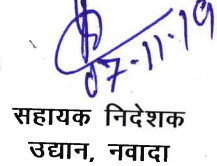 07-11-19
सहायक निदेशक
उद्यान, नवादा